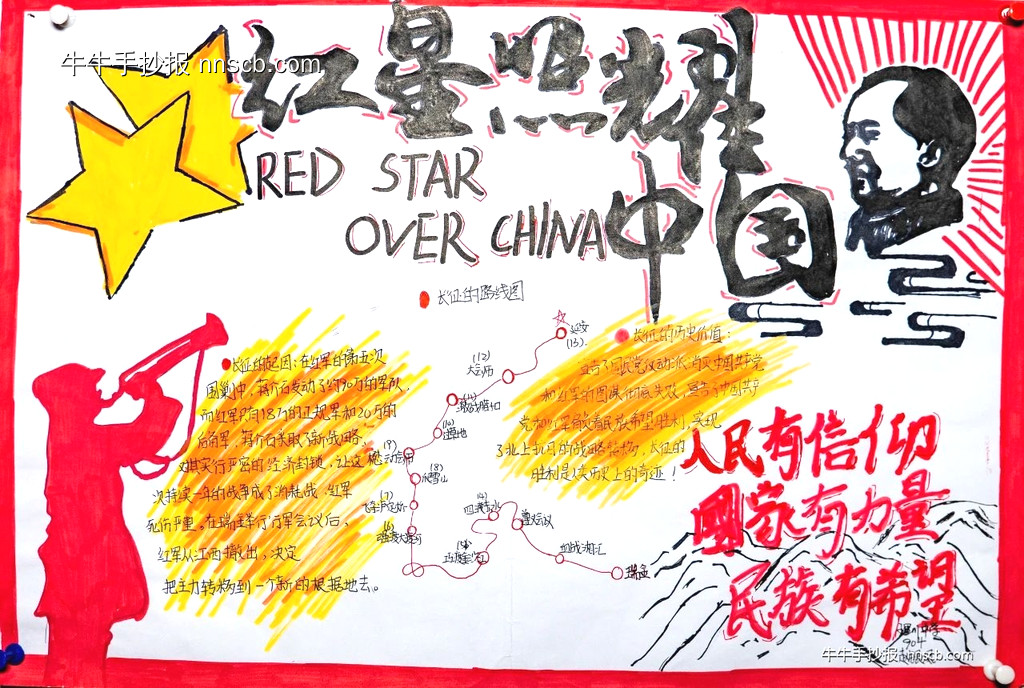 牛牛手抄报 nnscb.com
红星照耀
中国
RED STAR
OVER CHINA
长征的路线图
长征的起因：在红军的第五次
围剿中，蒋介石发动了约90万的军队，
而红军只有18万的正规军和20万的
后备军，蒋介石采取了新战略，
对其实行严密的经济封锁，让这
次持续一年的战争成了消耗战，红军
死伤严重，在瑞金举行行军会议后，
红军从江西撤出，决定
把主力转移到一个新的根据地去。
延安
(13).
(12)
大会师
(11)
激战腊子口
(10)
过草地
(9)
懋功会师
(8)
爬雪山
(7)
飞夺泸定桥
(6)
强渡大渡河
(5)
巧渡金沙江
(4)
四渡赤水
遵义会议
血战湘江
瑞金
长征的历史价值：
宣告了国民党反动派消灭中国共产党
和红军的图谋彻底失败，宣告了中国共产
党和红军肩负着民族希望胜利，实现
了北上抗日的战略转移，长征的
胜利是人类历史上的奇迹！
人民有信仰
國家有力量
民族有希望
904
牛牛手抄报 nnscb.com